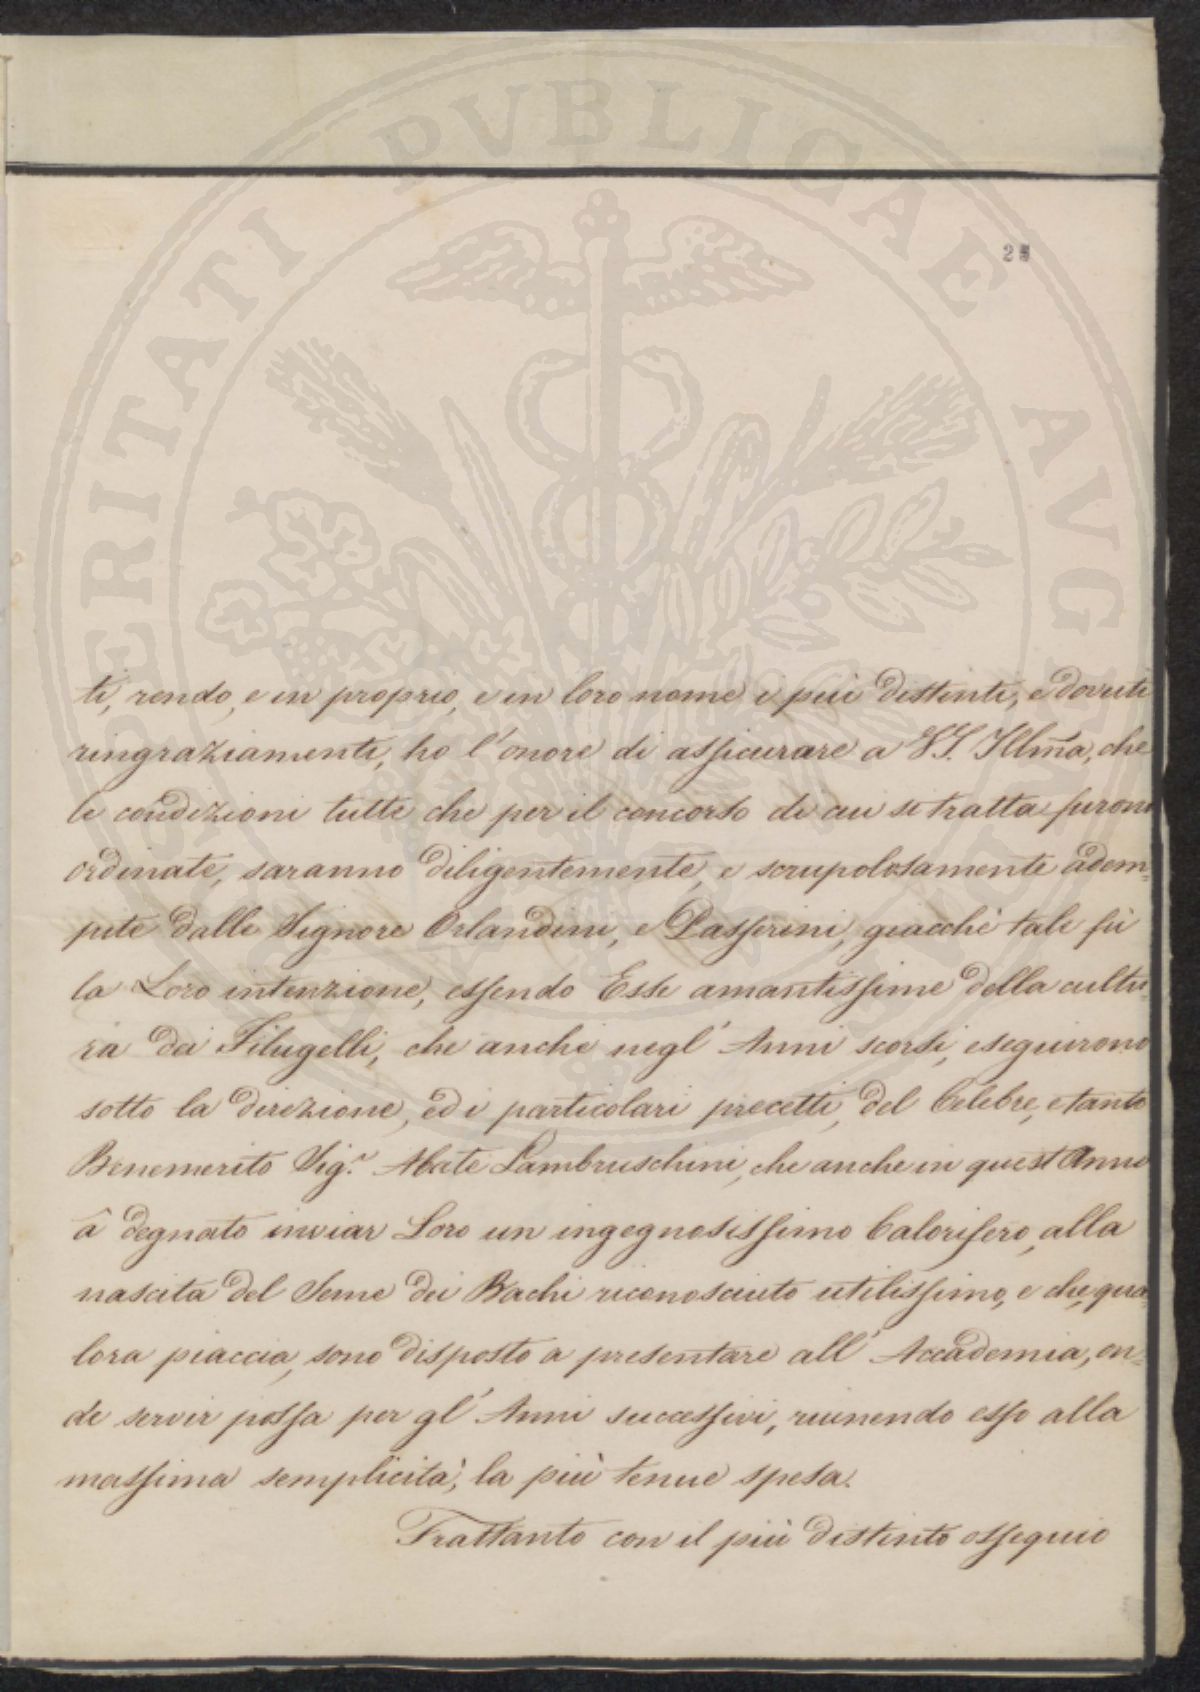 PROSPERITATI PVBLICAE AVGENDAE
2
ti, rendo, e in proprio, e in loro nome i più distinti, e dovuti
ringraziamenti, ho l'onore di assicurare a V.S. Illma, che
le condizioni tutte che per il concorso di cui si tratta furono
ordinate, saranno diligentemente, e scrupolosamente adem=
pite dalle Signore Orlandini, e Passerini, giacchè tale fù
la Loro intenzione, essendo Esse amantissime della cultu-
ra dei Filugelli, che anche negl' Anni scorsi, eseguirono
sotto la direzione, ed i particolari precetti, del Celebre, e tanto
Benemerito Sig.r Abate Lambruschini, che anche in quest'Anno
â degnato inviar Loro un ingegnosissimo Calorifero, alla
nascita del Seme dei Bachi riconosciuto utilissimo, e che, qua-
lora piaccia, sono disposto a presentare all' Accademia, on=
de servir possa per gl' Anni successivi, riunendo esso alla
massima semplicità, la più tenue spesa.
Frattanto con il più distinto ossequio